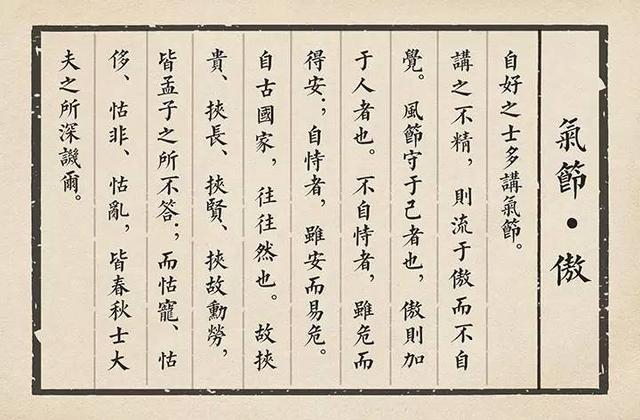 氣節·傲
自好之士多講氣節。
講之不精，則流于傲而不自
覺。風節守于己者也，傲則加
于人者也。不自恃者，雖危而
得安；自恃者，雖安而易危。
自古國家，往往然也。故挾
貴、挾長、挾賢、挾故勳勞，
皆孟子之所不答；而怙寵、怙
侈、怙非、怙亂，皆春秋士大
夫之所深譏爾。